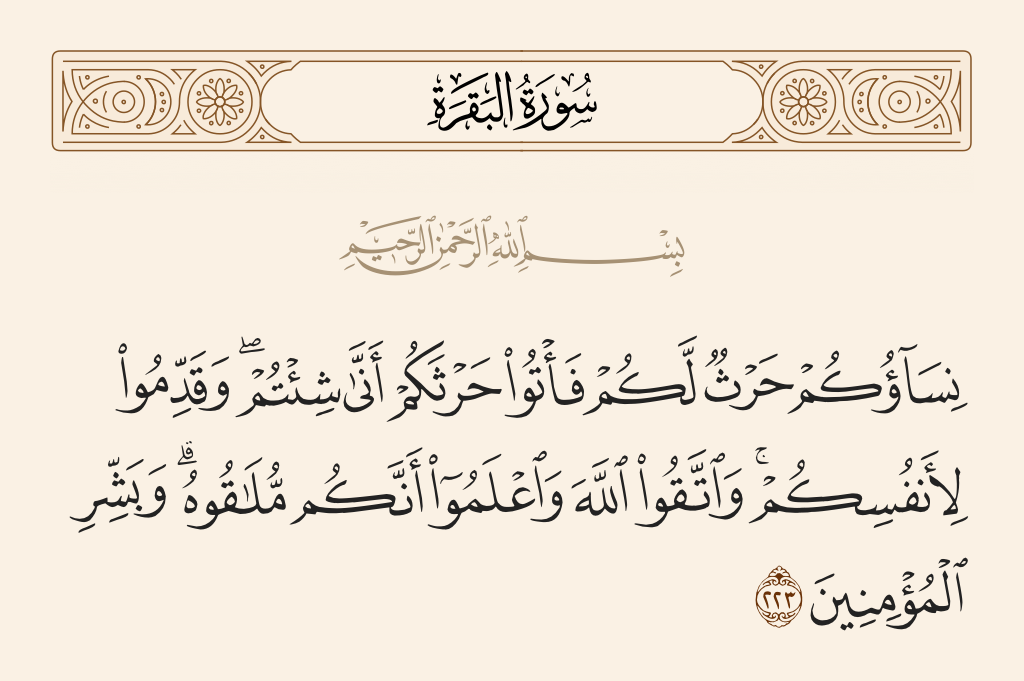 سُورَةُ البَقَرَةِ
بِسْمِ ٱللَّهِ ٱلرَّحْمَٰنِ ٱلرَّحِيمِ
نِسَآؤُكُمْ حَرْثٌ لَّكُمْ فَأْتُوا۟ حَرْثَكُمْ أَنَّىٰ شِئْتُمْ ۖ وَقَدِّمُوا۟
لِأَنفُسِكُمْ ۚ وَٱتَّقُوا۟ ٱللَّهَ وَٱعْلَمُوٓا۟ أَنَّكُم مُّلَـٰقُوهُ ۗ وَبَشِّرِ
ٱلْمُؤْمِنِينَ ٢٢٣